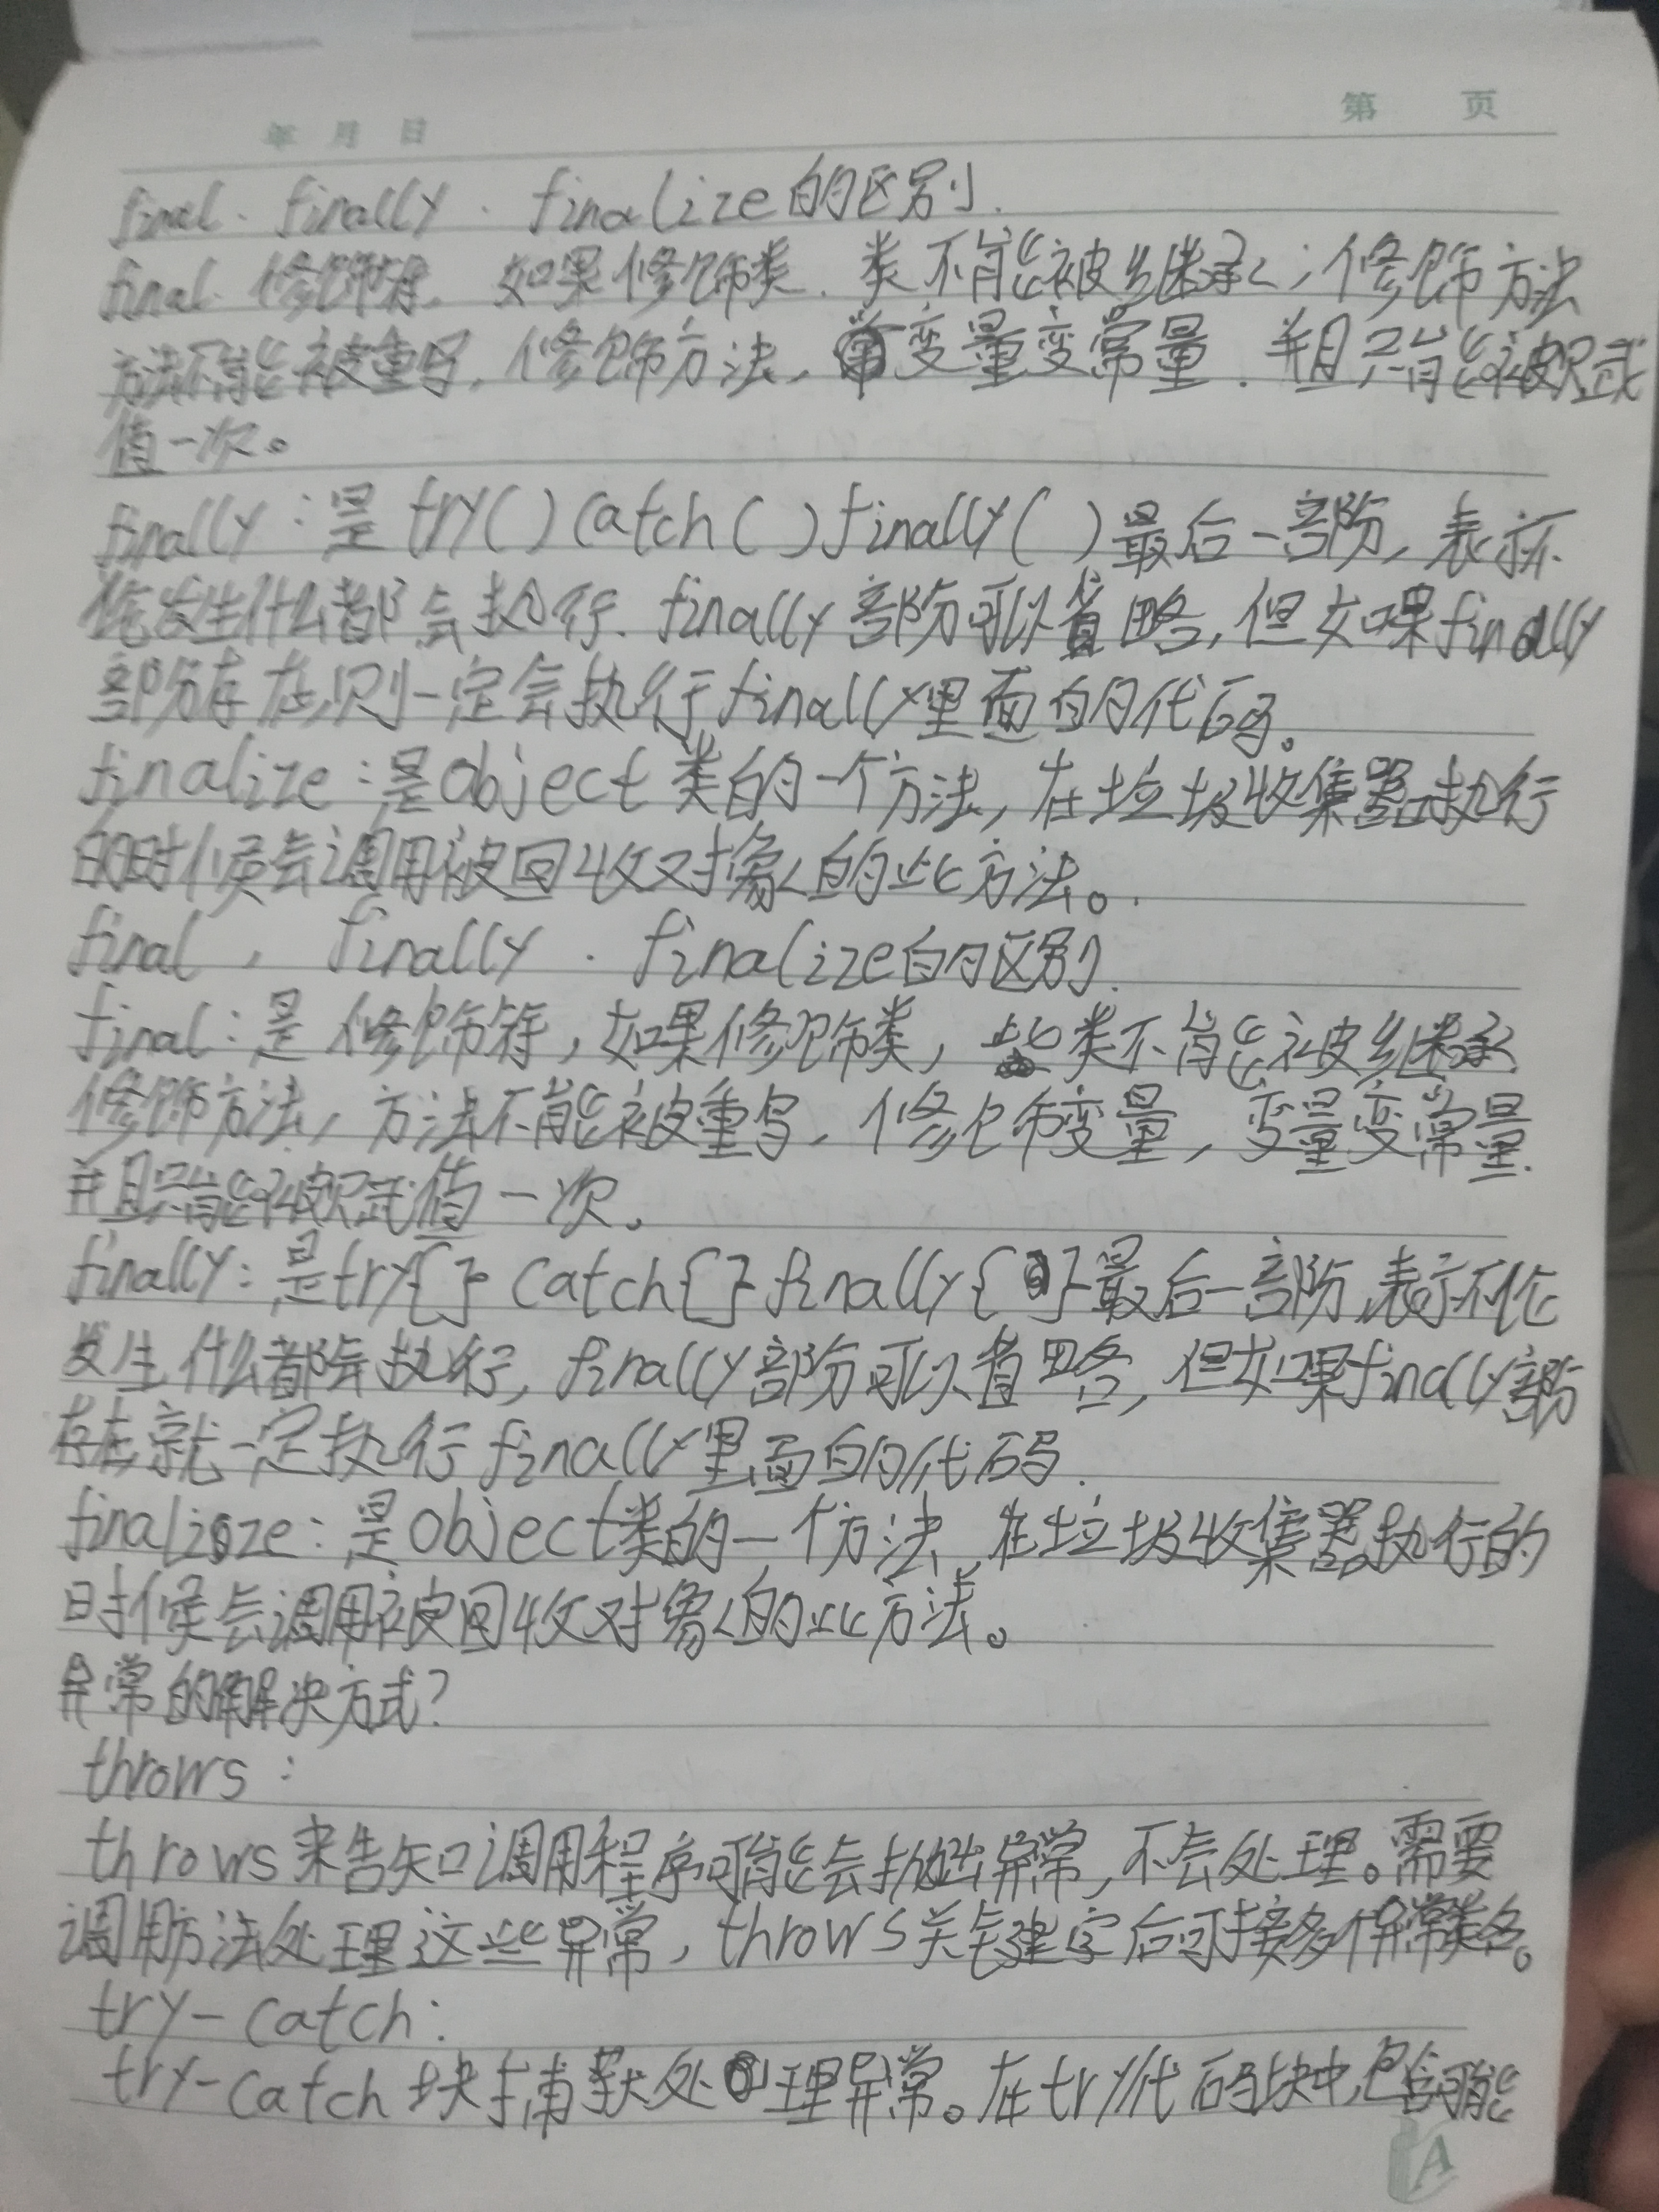 年 月 日
第 页
final. finally. finalize的区别.
final. 修饰符. 如果修饰类. 类不能被继承; 修饰方法
方法不能被重写, 修饰方法, 变量变常量. 并且只能被赋
值一次。
finally:是try()catch()finally()最后一部份, 表示
发生什么都会执行. finally部份可以省略, 但如果finally
部份存在,则一定会执行finally里面的代码。
finalize:是object类的一个方法, 在垃圾收集器执行
的时候会调用被回收对象的此方法。
final, finally. finalize的区别.
final:是修饰符, 如果修饰类, 此类不能被继承
修饰方法, 方法不能被重写, 修饰变量, 变量变常量.
并且只能被赋值一次.
finally:是try{}catch{}finally{}最后一部份,表示不论
发生什么都会执行, finally部份可以省略, 但如果finally部份
存在就一定执行finally里面的代码.
finalize:是object类的一个方法,在垃圾收集器执行的
时候会调用被回收对象的此方法。
异常的解决方式?
throws:
throws来告知调用程序可能会抛出异常, 不会处理。需要
调用方法处理这些异常, throws关键字后可接多个异常类名。
try-catch:
try-catch块捕获处理异常。在try代码块中包含可能
A